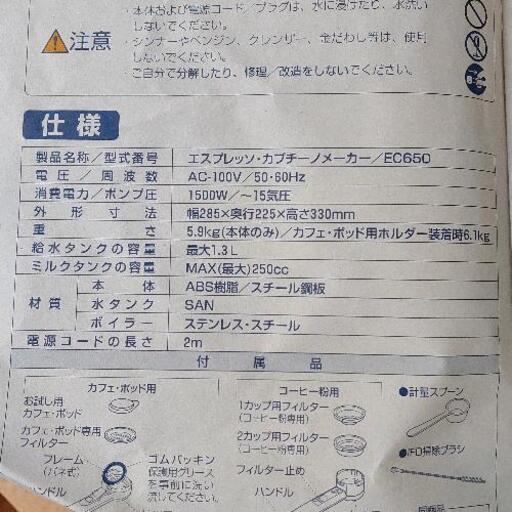 ・本体および電源コード／プラグは、水に浸けたり、水洗い
しないでください。
⚠注意
・シンナーやベンジン、クレンザー、金だわし等は、使用
しないでください。
・ご自分で分解したり、修理／改造をしないでください。
仕様
製品名称／型式番号 エスプレッソ・カプチーノメーカー／EC650
電圧／周波数 AC-100V／50・60Hz
消費電力／ポンプ圧 1500W／～15気圧
外形寸法 幅285×奥行225×高さ330mm
重さ 5.9kg(本体のみ)／カフェ・ポッド用ホルダー装着時6.1kg
給水タンクの容量 最大1.3L
ミルクタンクの容量 MAX(最大)250cc
材質 本体 ABS樹脂／スチール鋼板
水タンク SAN
ボイラー ステンレス・スチール
電源コードの長さ 2m
付属品
カフェ・ポッド用
お試し用
カフェ・ポッド
カフェ・ポッド専用
フィルター
フレーム
(バネ式)
ゴムパッキン
保護用グリース
を事前に洗い
流してください。
ハンドル
コーヒー粉用
1カップ用フィルター
(コーヒー粉専用)
2カップ用フィルター
(コーヒー粉専用)
フィルター止め
ハンドル
●計量スプーン
掃除ブラシ